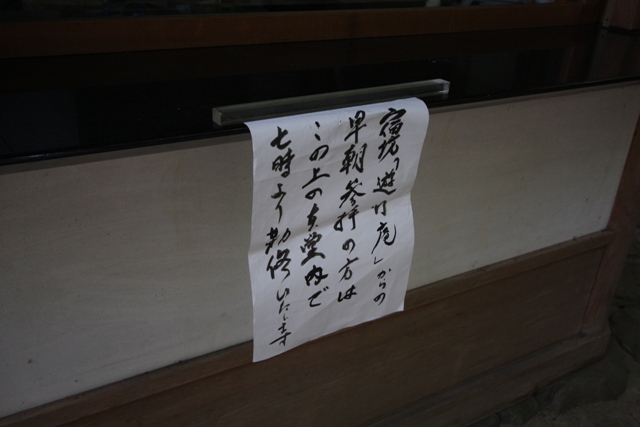 宿坊「遊行庵」からの
早朝参拝の方は
この上の本堂内で
七時より勤修いたします